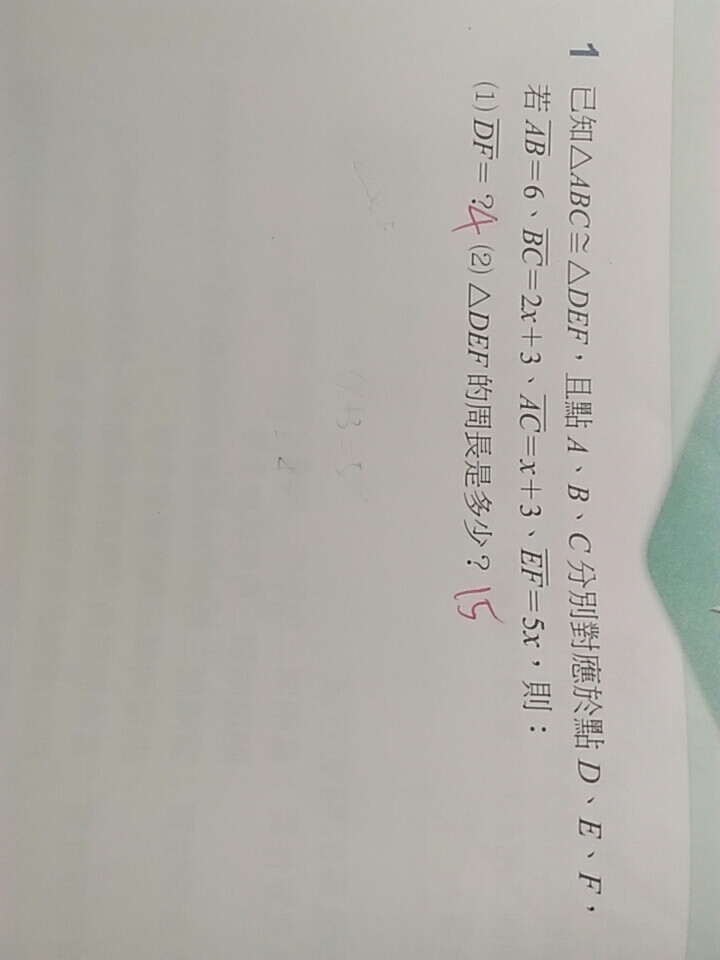 1 已知△ABC≅△DEF，且點 A、B、C 分別對應於點 D、E、F，
若 AB=6、BC=2x+3、AC=x+3、EF=5x，則：
(1) DF=？4 (2) △DEF 的周長是多少？15